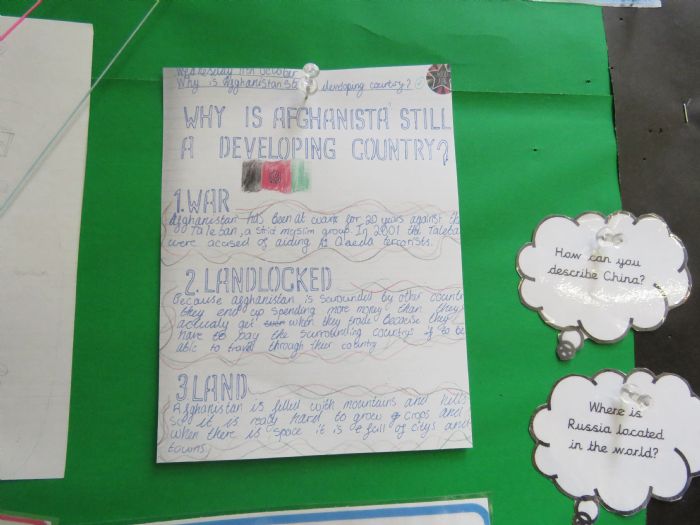 Wednesday 11th October
Why is Afghanistan st developing country?
WHY IS AFGHANISTA STILL
A DEVELOPING COUNTRY?
1. WAR
Afghanistan has been at war for 20 years against the
Taleban, a strict muslim group. In 2001 the Taleba
were acused of aiding Al Qaeda terrorists.
2. LANDLOCKED
Because afghanistan is surrounded by other countri
they end up spending more money than they
actualy get when they trade because they
have to pay the surrounding countrys to be
able to travel through their country
3 LAND
Afghanistan is filled with mountains and hills
so it is realy hard to grow crops and
when there is space it is full of citys and
towns.
How can you
describe China?
Where is
Russia located
in the world?